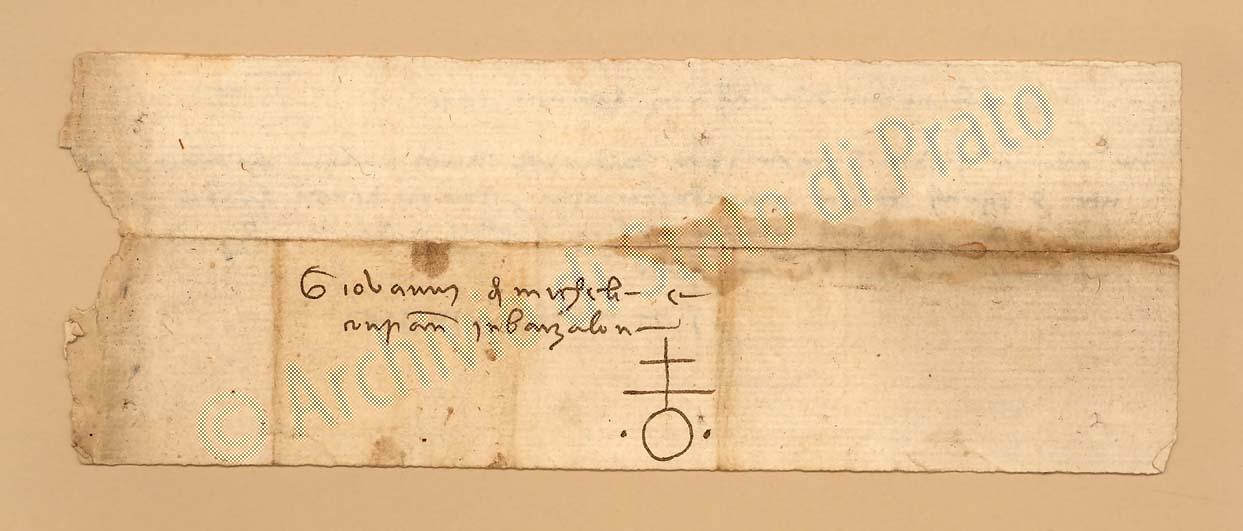 Giovanni di michele e
conpangni in barzalona
© Archivio di Stato di Prato
2